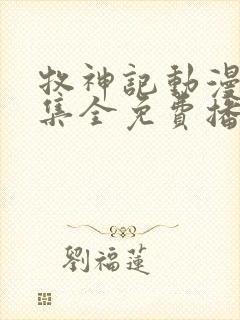 牧神記動漫
集全免費播
劉福蓮